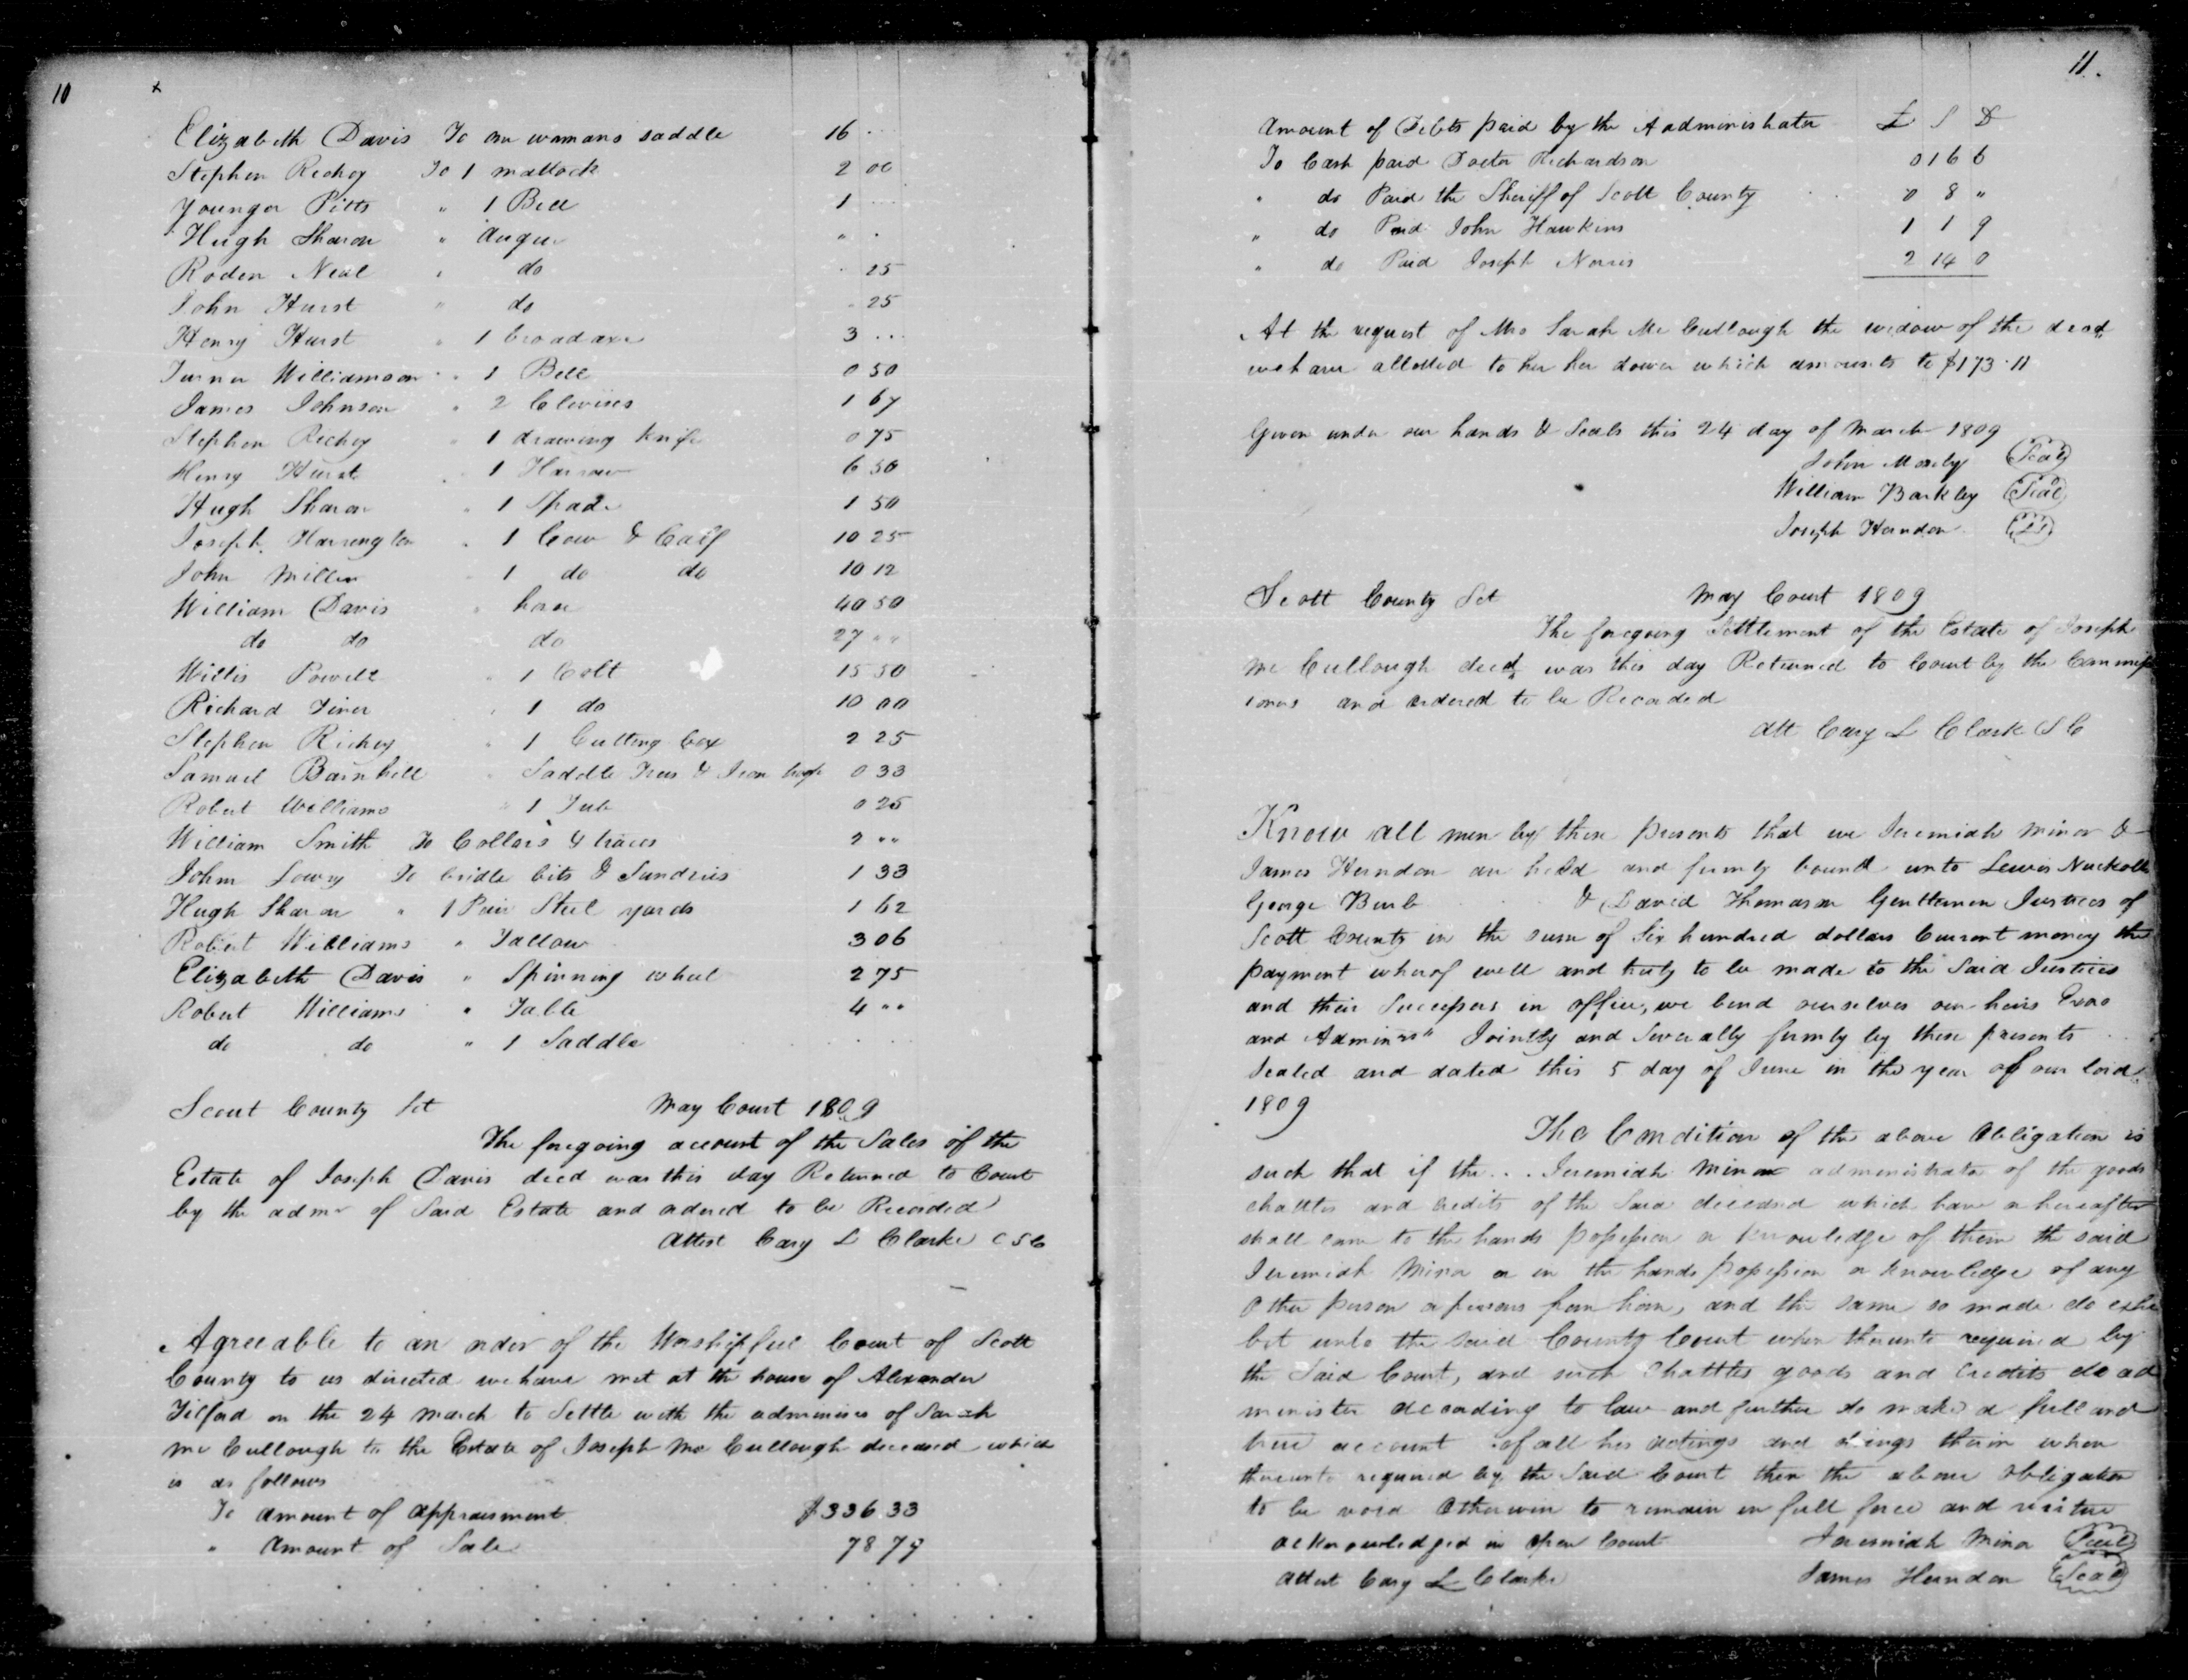 10
x
Elizabeth Davis To one womans saddle 16 ..
Stephen Richey To 1 mattock 2 00
Younger Pitts " 1 Bell 1 ...
Hugh Sharon " Augur " .
Roden Neal " do . 25
John Hurst " do . 25
Henry Hurst " 1 broad axe 3 ...
Turner Williamson " 1 Bell 0 50
James Johnson " 2 Clevises 1 67
Stephen Richey " 1 drawing knife 0 75
Henry Hurst " 1 Harrow 6 50
Hugh Sharon " 1 Spade 1 50
Joseph Harrington " 1 Cow & Calf 10 25
John Miller " 1 do do 10 12
William Davis " horse 40 50
do do do 27 " "
Willis Powell " 1 Colt 15 50
Richard Tiner " 1 do 10 00
Stephen Richey " 1 Cutting box 2 25
Samuel Barnhill " Saddle Trees & Iron hoops 0 33
Robert Williams " 1 Tub 0 25
William Smith To Collars & traces 2 " "
John Lowry To bridle bits & Sundries 1 33
Hugh Sharon " 1 Pair Steel yards 1 62
Robert Williams " Tallow 3 06
Elizabeth Davis " Spinning wheel 2 75
Robert Williams " Table 4 " "
do do " 1 Saddle . . .
Scout County Sct May Court 1809
The foregoing account of the Sales of the
Estate of Joseph Davis decd was this day Returned to Court
by the admr of Said Estate and ordered to be Recorded
Attest Cary L Clarke C S C
Agreeable to an order of the Worshipfull Court of Scott
County to us directed we have met at the house of Alexander
Tilford on the 24 March to Settle with the adminisrs of Sarah
Mc Cullough to the Estate of Joseph Mc Cullough deceased which
is as follows
To amount of appraisment $336 33
" Amount of Sale 78 79
11.
Amount of Debts paid by the Aadministrator £ S D
To Cash paid Doctor Richardson 0 16 6
" do Paid the Sheriff of Scott County 0 8 "
" do Paid John Hawkins 1 1 9
" do Paid Joseph Norris 2 14 0
At the request of Mrs Sarah Mc Cullough the widow of the decd
we have allotted to her her dower which amounts to $173.11
Given under our hands & Seals this 24 day of March 1809
John Mosby Seal
William Barkley Seal
Joseph Herndon LS
Scott County Sct May Court 1809
The foregoing Settlement of the Estate of Joseph
Mc Cullough decd was this day Returned to Court by the Commiss
ioners and ordered to be Recorded
Att Cary L Clark S C
Know all men by these presents that we Jeremiah Minor &
James Herndon are held and firmly bound unto Lewis Nuckolls
George Burb & David Thomason Gentlemen Justices of
Scott County in the sum of Six hundred dollars Current money the
payment wherof well and truly to be made to the Said Justices
and their Successors in office, we bind ourselves our heirs Exrs
and Adminrs" Jointly and Severally firmly by these presents
Sealed and dated this 5 day of June in the year of our lord
1809
The Condition of the above Obligation is
such that if the ... Jeremiah Minor administrator of the goods
chattles and credits of the Said deceased which have or hereafter
shall come to the hands possession or knowledge of them the said
Jeremiah Minor or in the hands possession or knowledge of any
Other person or persons for him, and the same so made do exhi
bit unto the said County Court when thereunto required by
the Said Court, and such Chattles goods and Credits do ad
minister according to law and further do make a full and
true account of all his actings and doings therein when
thereunto required by the Said Court then the above obligation
to be void Otherwise to remain in full force and virtue
Acknowledged in Open Court Jeremiah Minor Seal
Attest Cary L Clarke James Herndon Seal